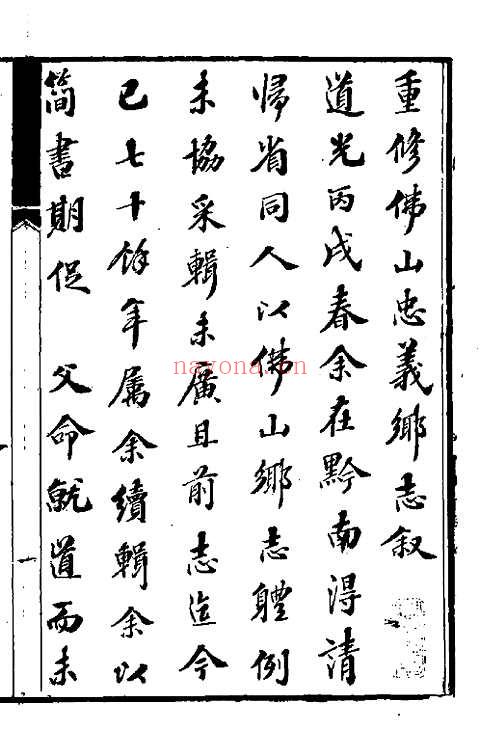 重修佛山忠義鄉志叙
道光丙戌春余在黔南得請
歸省同人以佛山鄉志體例
未協采輯未廣且前志迄今
已七十餘年屬余續輯余以
簡書期促 父命就道而未
一
nayona.cn